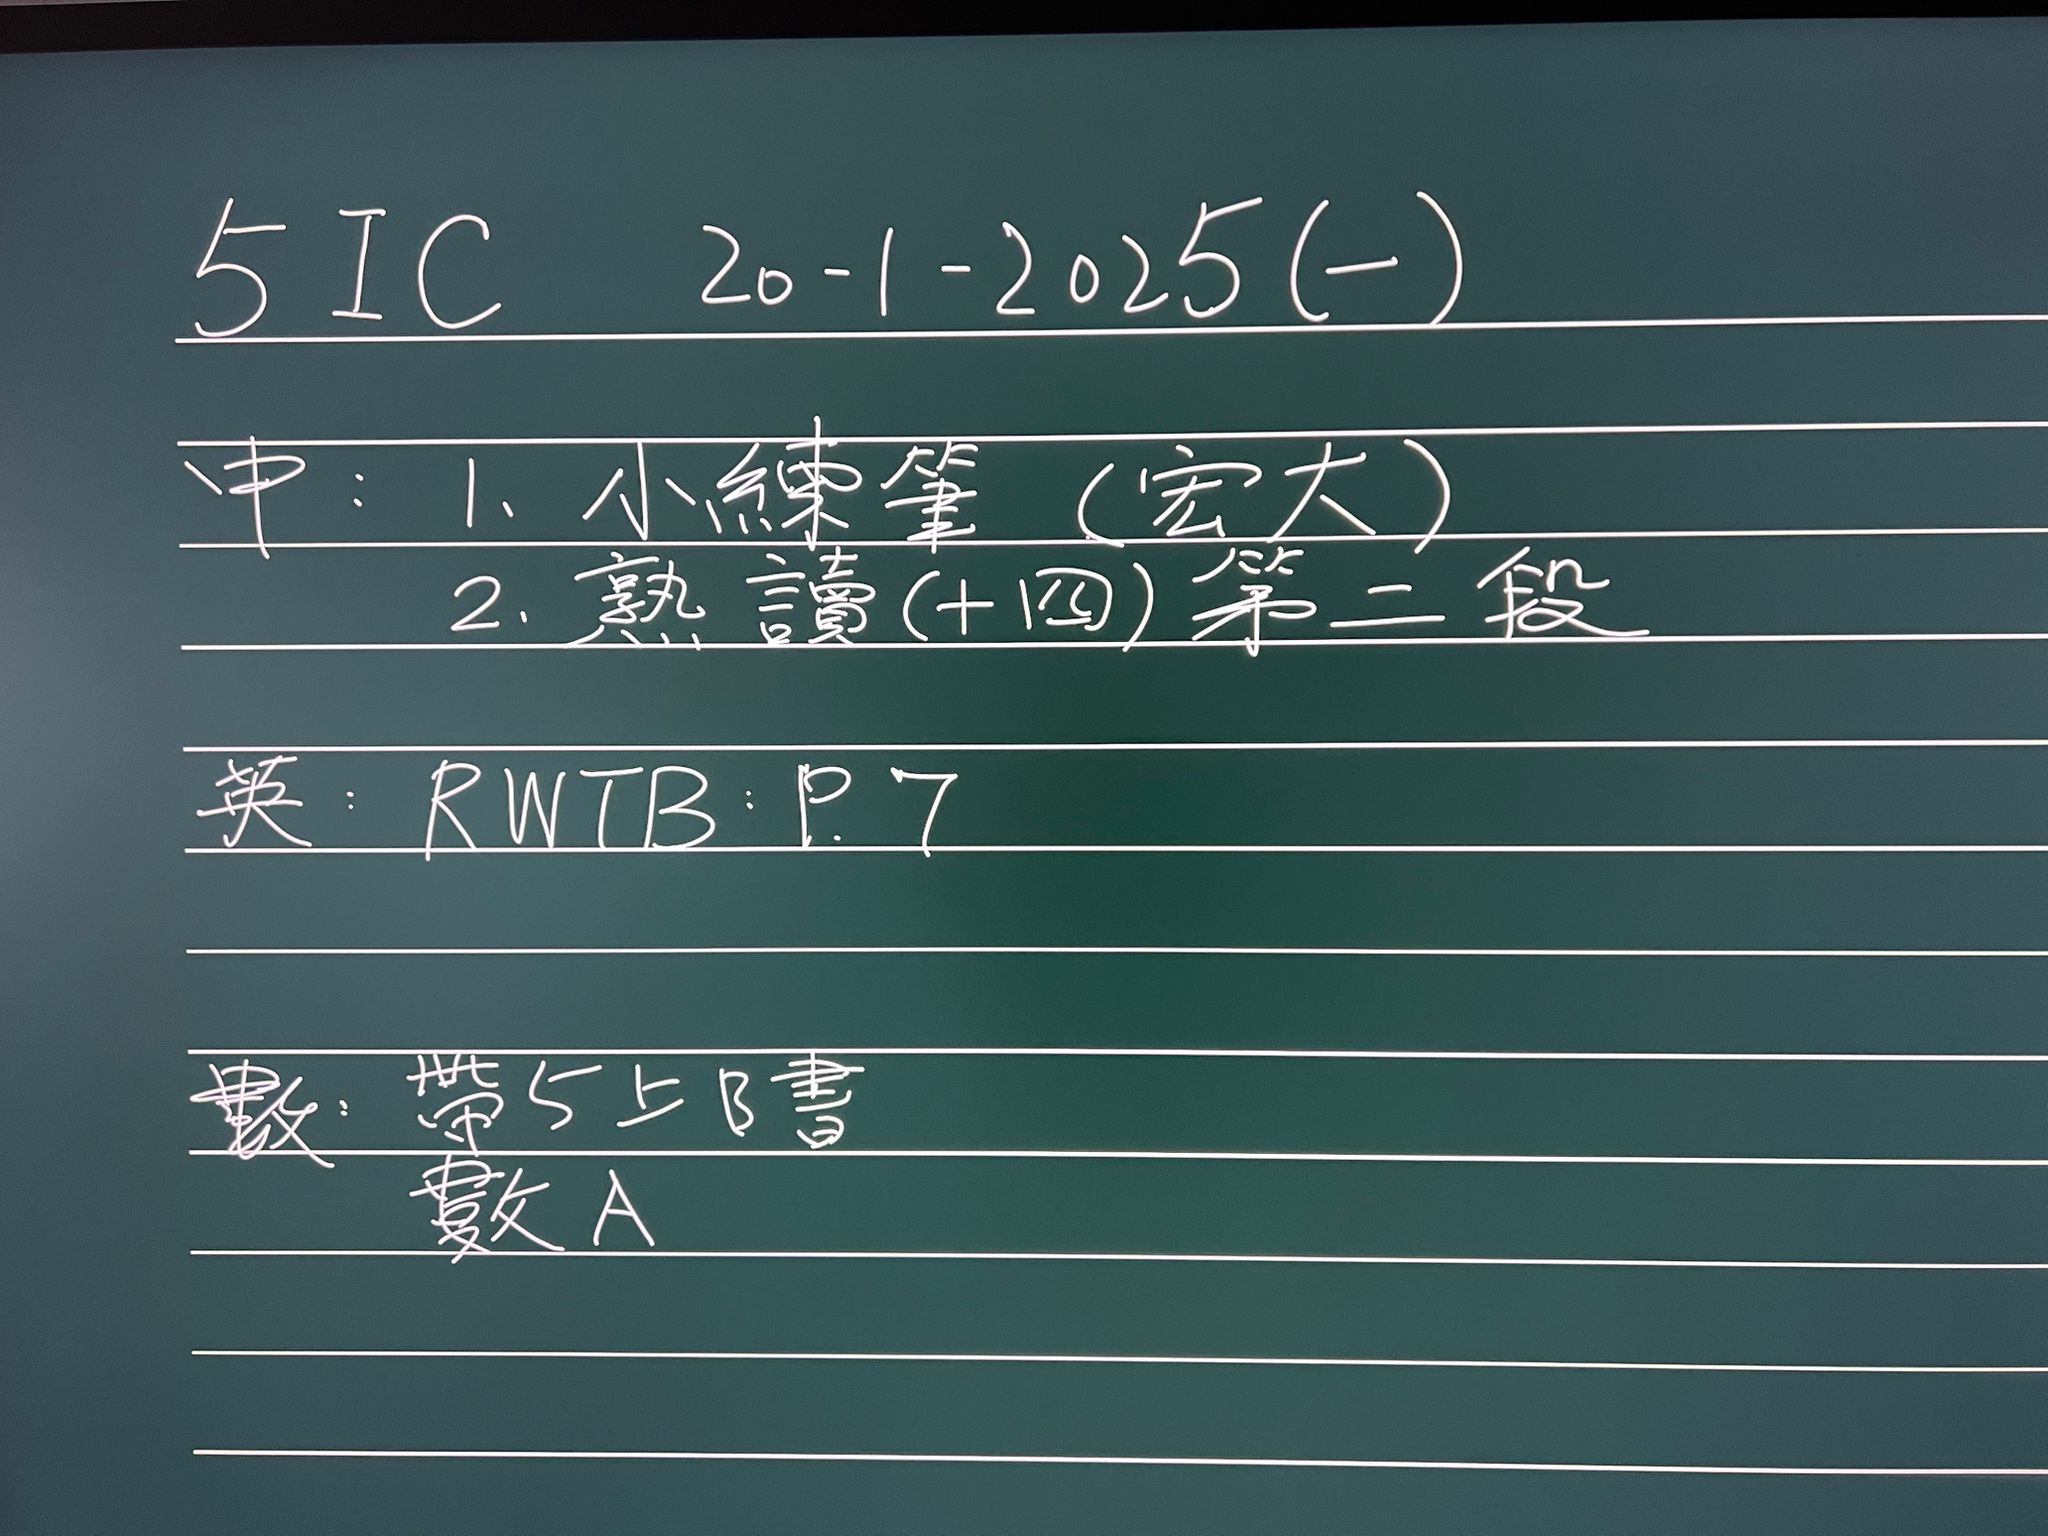 5IC 20-1-2025(一)
中: 1. 小練筆 (宏大)
2. 熟讀(十四)第二段
英: RWTB: P.7
數: 帶5上B書
數A